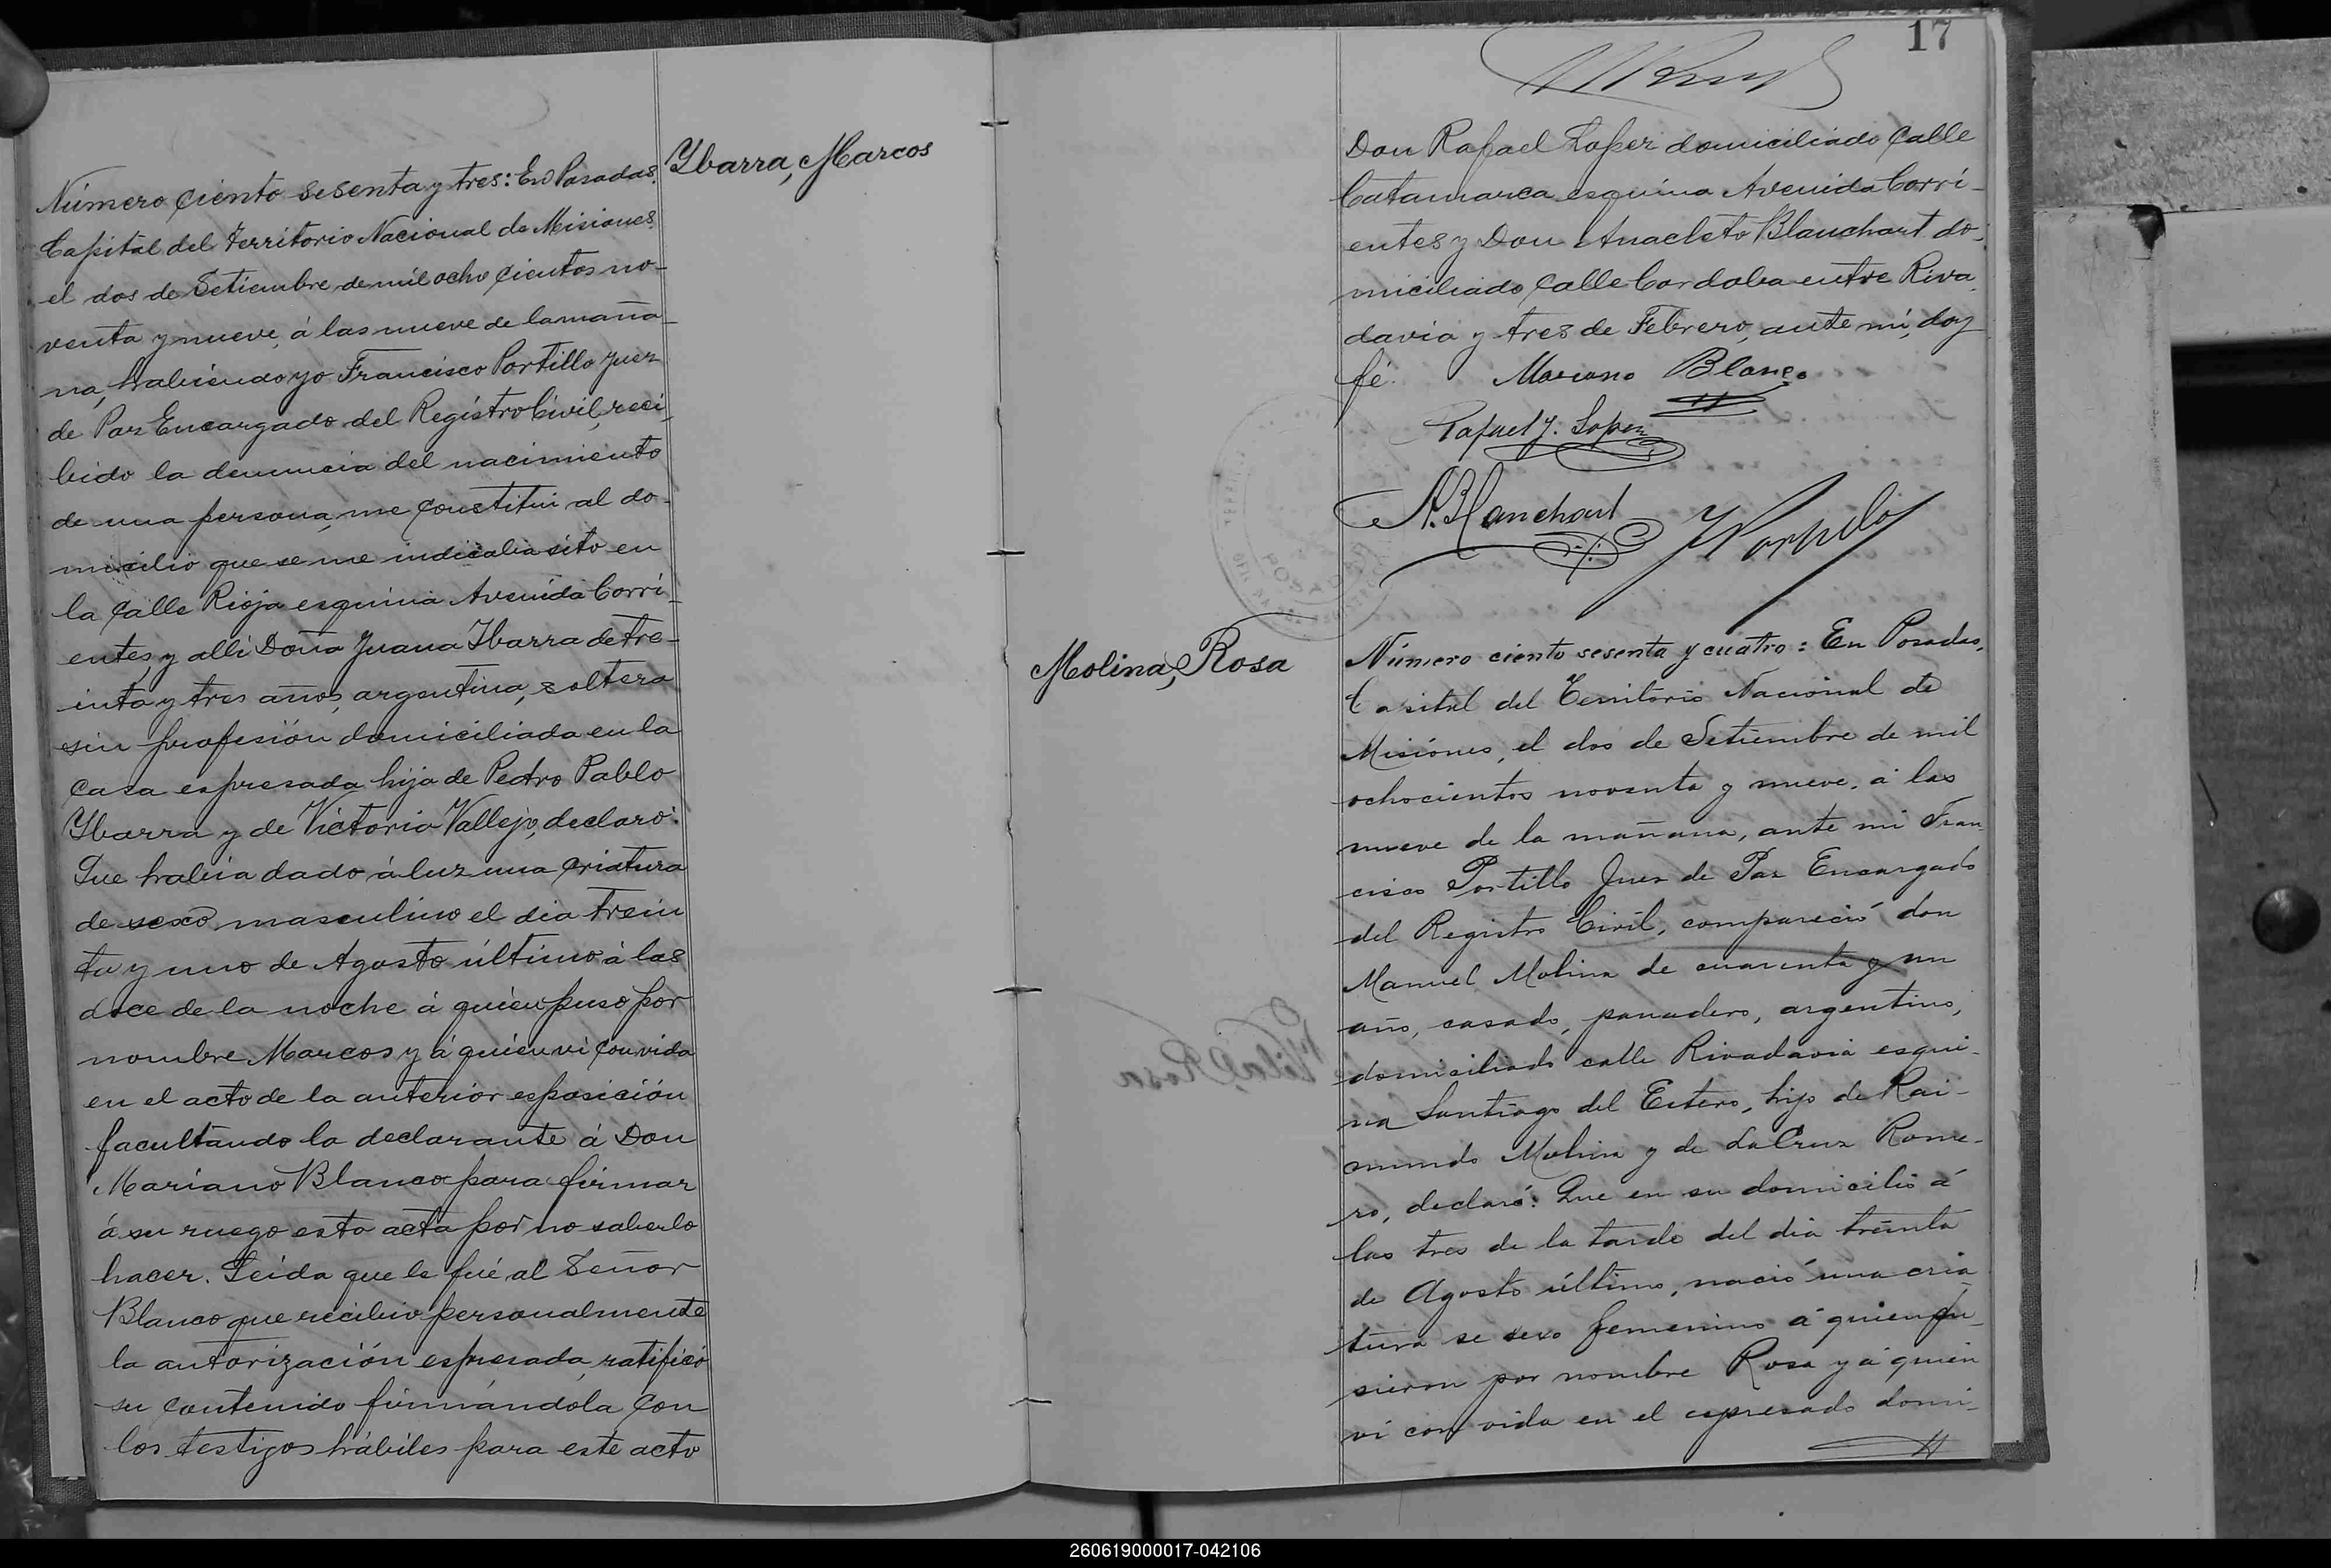 Ybarra, Marcos
Número ciento sesenta y tres: En Posadas,
Capital del Territorio Nacional de Misiones,
el dos de Setiembre de mil ocho cientos no-
venta y nueve, á las nueve de la maña-
na, habiendo yo Francisco Portillo Juez
de Paz Encargado del Registro Civil, reci-
bido la denuncia del nacimiento
de una persona, me constitui al do-
micilio que se me indicaba sito en
la calle Rioja esquina Avenida Corri-
entes, y alli Doña Juana Ibarra de tre-
inta y tres años, argentina, soltera
sin profesión domiciliada en la
casa espresada hija de Pedro Pablo
Ybarra y de Victoria Vallejo, declaró:
Que habia dado á luz una criatura
de sexo masculino el dia trein
ta y uno de Agosto último á las
doce de la noche á quien puso por
nombre Marcos y á quien vi con vida
en el acto de la anterior esposición
facultando la declarante á Don
Mariano Blanco para firmar
á su ruego esta acta por no saberlo
hacer. Leida que le fué al Señor
Blanco que recibio personalmente
la autorización espresada, ratificó
su contenido firmándola con
los testigos hábiles para este acto
17
Don Rafael Lopez domiciliado calle
Catamarca esquina Avenida Corri-
entes y Don Anacleto Blanchart do-
miciliado calle Cordoba entre Riva
davia y tres de Febrero, ante mi, doy
fé.
Mariano Blanco
Rafael J. Lopez
A. Blanchart
Molina, Rosa
Número ciento sesenta y cuatro: En Posadas,
Capital del Territorio Nacional de
Misiones, el dos de Setiembre de mil
ochocientos noventa y nueve, á las
nueve de la mañana, ante mi Fran
cisco Portillo Juez de Paz Encargado
del Registro Civil, compareció don
Manuel Molina de cuarenta y un
año, casado, panadero, argentino,
domiciliado calle Rivadavia esqui-
na Santiago del Estero, hijo de Rai-
mundo Molina y de La Cruz Rome-
ro, declaró: Que en su domicilio á
las tres de la tarde del dia treinta
de Agosto último, nació una cria
tura se sexo femenino á quien pu-
sieron por nombre Rosa y á quien
vi con vida en el espresado domi-
260619000017-042106